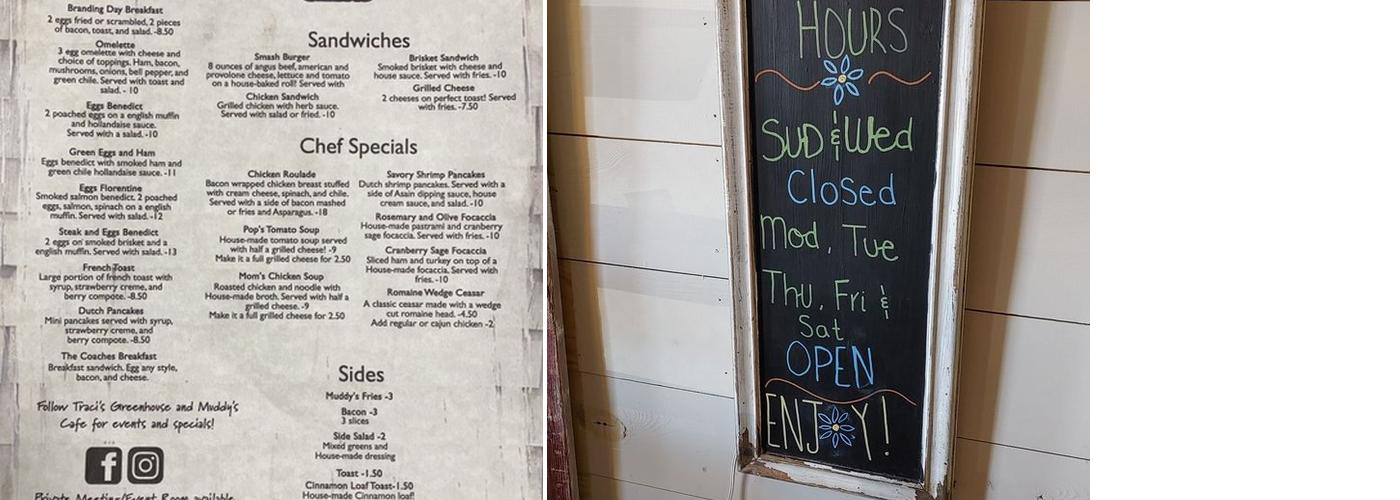 Branding Day Breakfast
2 eggs fried or scrambled, 2 pieces
of bacon, toast, and salad. -8.50
Omelette
3 egg omelette with cheese and
choice of toppings. Ham, bacon,
mushrooms, onions, bell pepper, and
green chile. Served with toast and
salad. - 10
Eggs Benedict
2 poached eggs on a english muffin
and hollandaise sauce.
Served with a salad. -10
Green Eggs and Ham
Eggs benedict with smoked ham and
green chile hollandaise sauce. -11
Eggs Florentine
Smoked salmon benedict. 2 poached
eggs, salmon, spinach on a english
muffin. Served with salad. -12
Steak and Eggs Benedict
2 eggs on smoked brisket and a
english muffin. Served with salad. -13
French Toast
Large portion of french toast with
syrup, strawberry creme, and
berry compote. -8.50
Dutch Pancakes
Mini pancakes served with syrup,
strawberry creme, and
berry compote. -8.50
The Coaches Breakfast
Breakfast sandwich. Egg any style,
bacon, and cheese.
Follow Traci's Greenhouse and Muddy's
Cafe for events and specials!
Private Meeting/Event Room available
Sandwiches
Smash Burger
8 ounces of angus beef, american and
provolone cheese, lettuce and tomato
on a house-baked roll! Served with
Chicken Sandwich
Grilled chicken with herb sauce.
Served with salad or fried. -10
Brisket Sandwich
Smoked brisket with cheese and
house sauce. Served with fries. -10
Grilled Cheese
2 cheeses on perfect toast! Served
with fries. -7.50
Chef Specials
Chicken Roulade
Bacon wrapped chicken breast stuffed
with cream cheese, spinach, and chile.
Served with a side of bacon mashed
or fries and Asparagus. -18
Pop's Tomato Soup
House-made tomato soup served
with half a grilled cheese! -9
Make it a full grilled cheese for 2.50
Mom's Chicken Soup
Roasted chicken and noodle with
House-made broth. Served with half a
grilled cheese. -9
Make it a full grilled cheese for 2.50
Savory Shrimp Pancakes
Dutch shrimp pancakes. Served with a
side of Asain dipping sauce, house
cream sauce, and salad. -10
Rosemary and Olive Focaccia
House-made pastrami and cranberry
sage focaccia. Served with fries. -10
Cranberry Sage Focaccia
Sliced ham and turkey on top of a
House-made focaccia. Served with
fries. -10
Romaine Wedge Ceasar
A classic ceasar made with a wedge
cut romaine head. -4.50
Add regular or cajun chicken -2
Sides
Muddy's Fries -3
Bacon -3
3 slices
Side Salad -2
Mixed greens and
House-made dressing
Toast -1.50
Cinnamon Loaf Toast-1.50
House-made Cinnamon loaf!
HOURS
SUD & Wed
Closed
Mod, Tue
Thu, Fri &
Sat
OPEN
ENJOY!